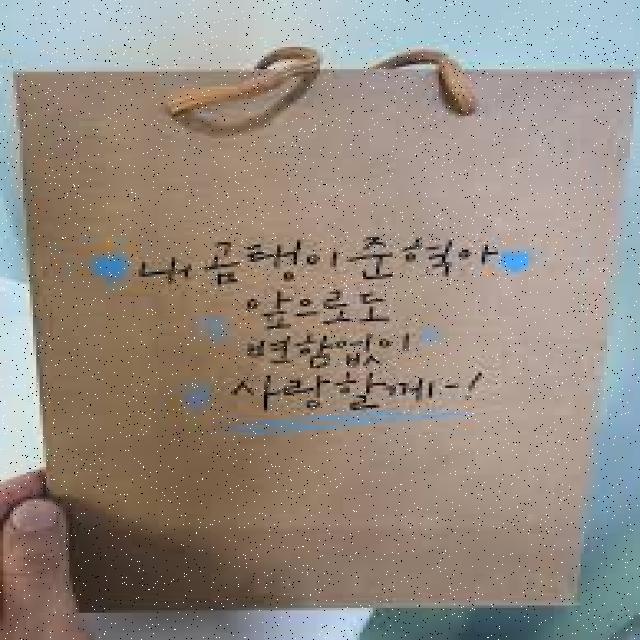 내 곰탱이 준혁아
앞으로도
변함없이
사랑할께~!